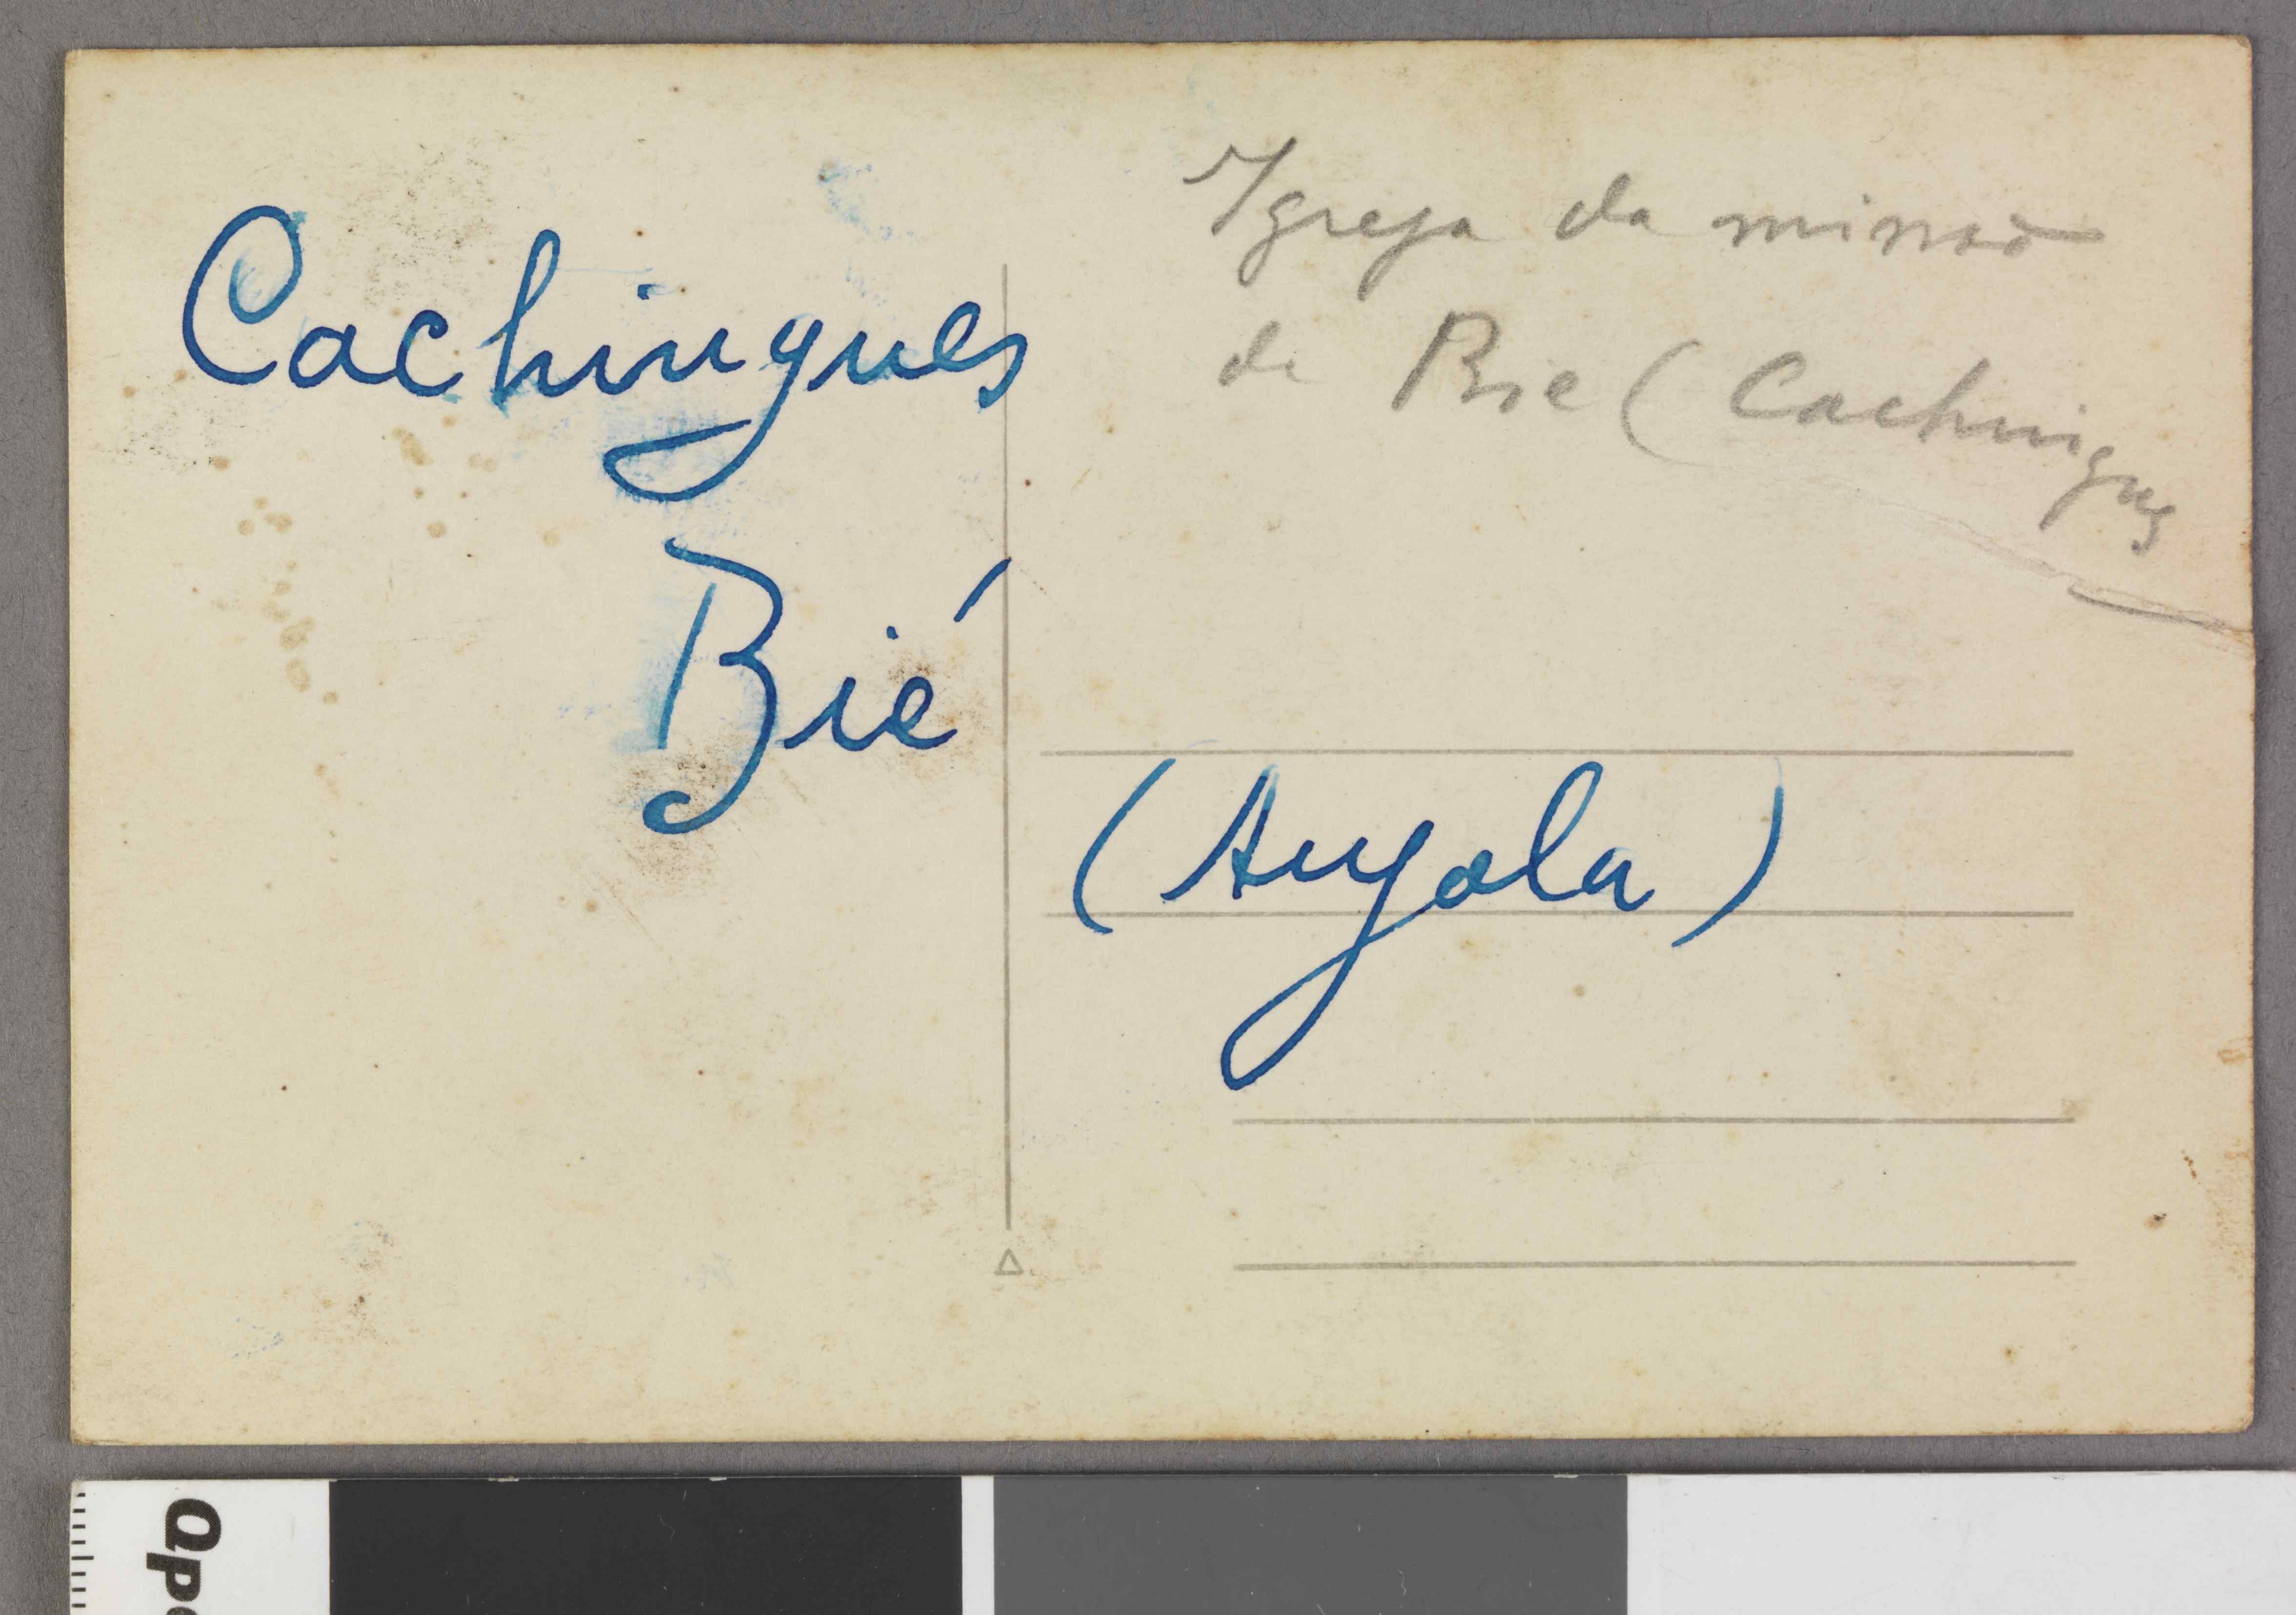 Cachingues
Bié
Igreja da missão
de Bie (Cachingues
(Angola)